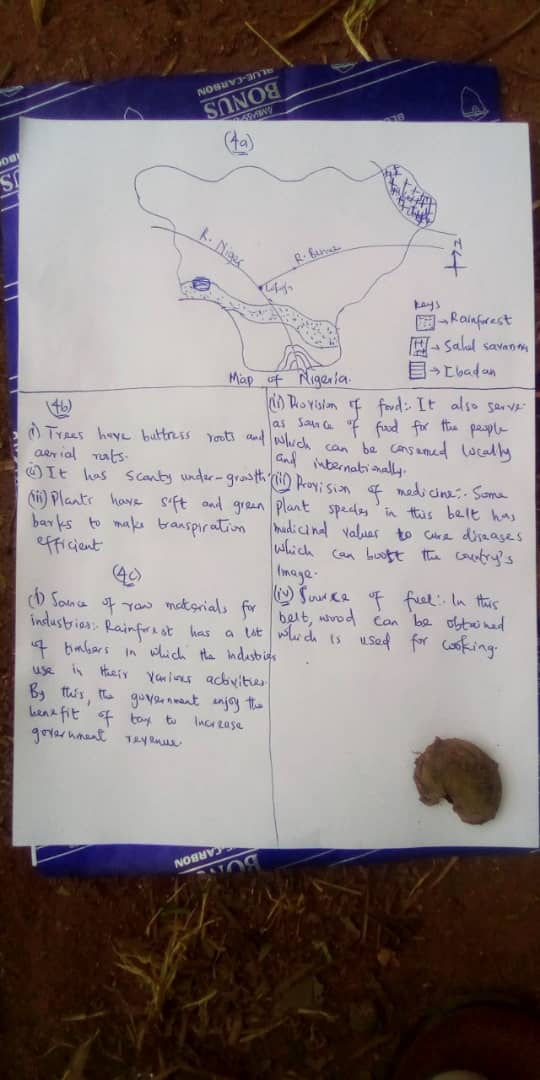 BLUE-CARBON
BONUS
(4a)
R. Niger
R. Benue
Lokoja
N
Keys
→ Rainforest
→ Sahel savanna
→ Ibadan
Map of Nigeria.
(4b)
(i) Trees have buttress roots and
aerial roots.
(ii) It has scanty under-growth
(iii) Plants have soft and green
barks to make transpiration
efficient
(4c)
(i) Source of raw materials for
industries:. Rainforest has a lot
of timbers in which the industries
use in their various activities.
By this, the government enjoy the
benefit of tax to increase
government revenue.
(ii) Provision of food:. It also serve
as source of food for the people
which can be consumed locally
and internationally.
(iii) Provision of medicine:. Some
plant species in this belt has
medicinal values to cure diseases
which can boost the country's
Image.
(iv) Source of fuel:. In this
belt, wood can be obtained
which is used for cooking.
BLUE-CARBON
BONUS